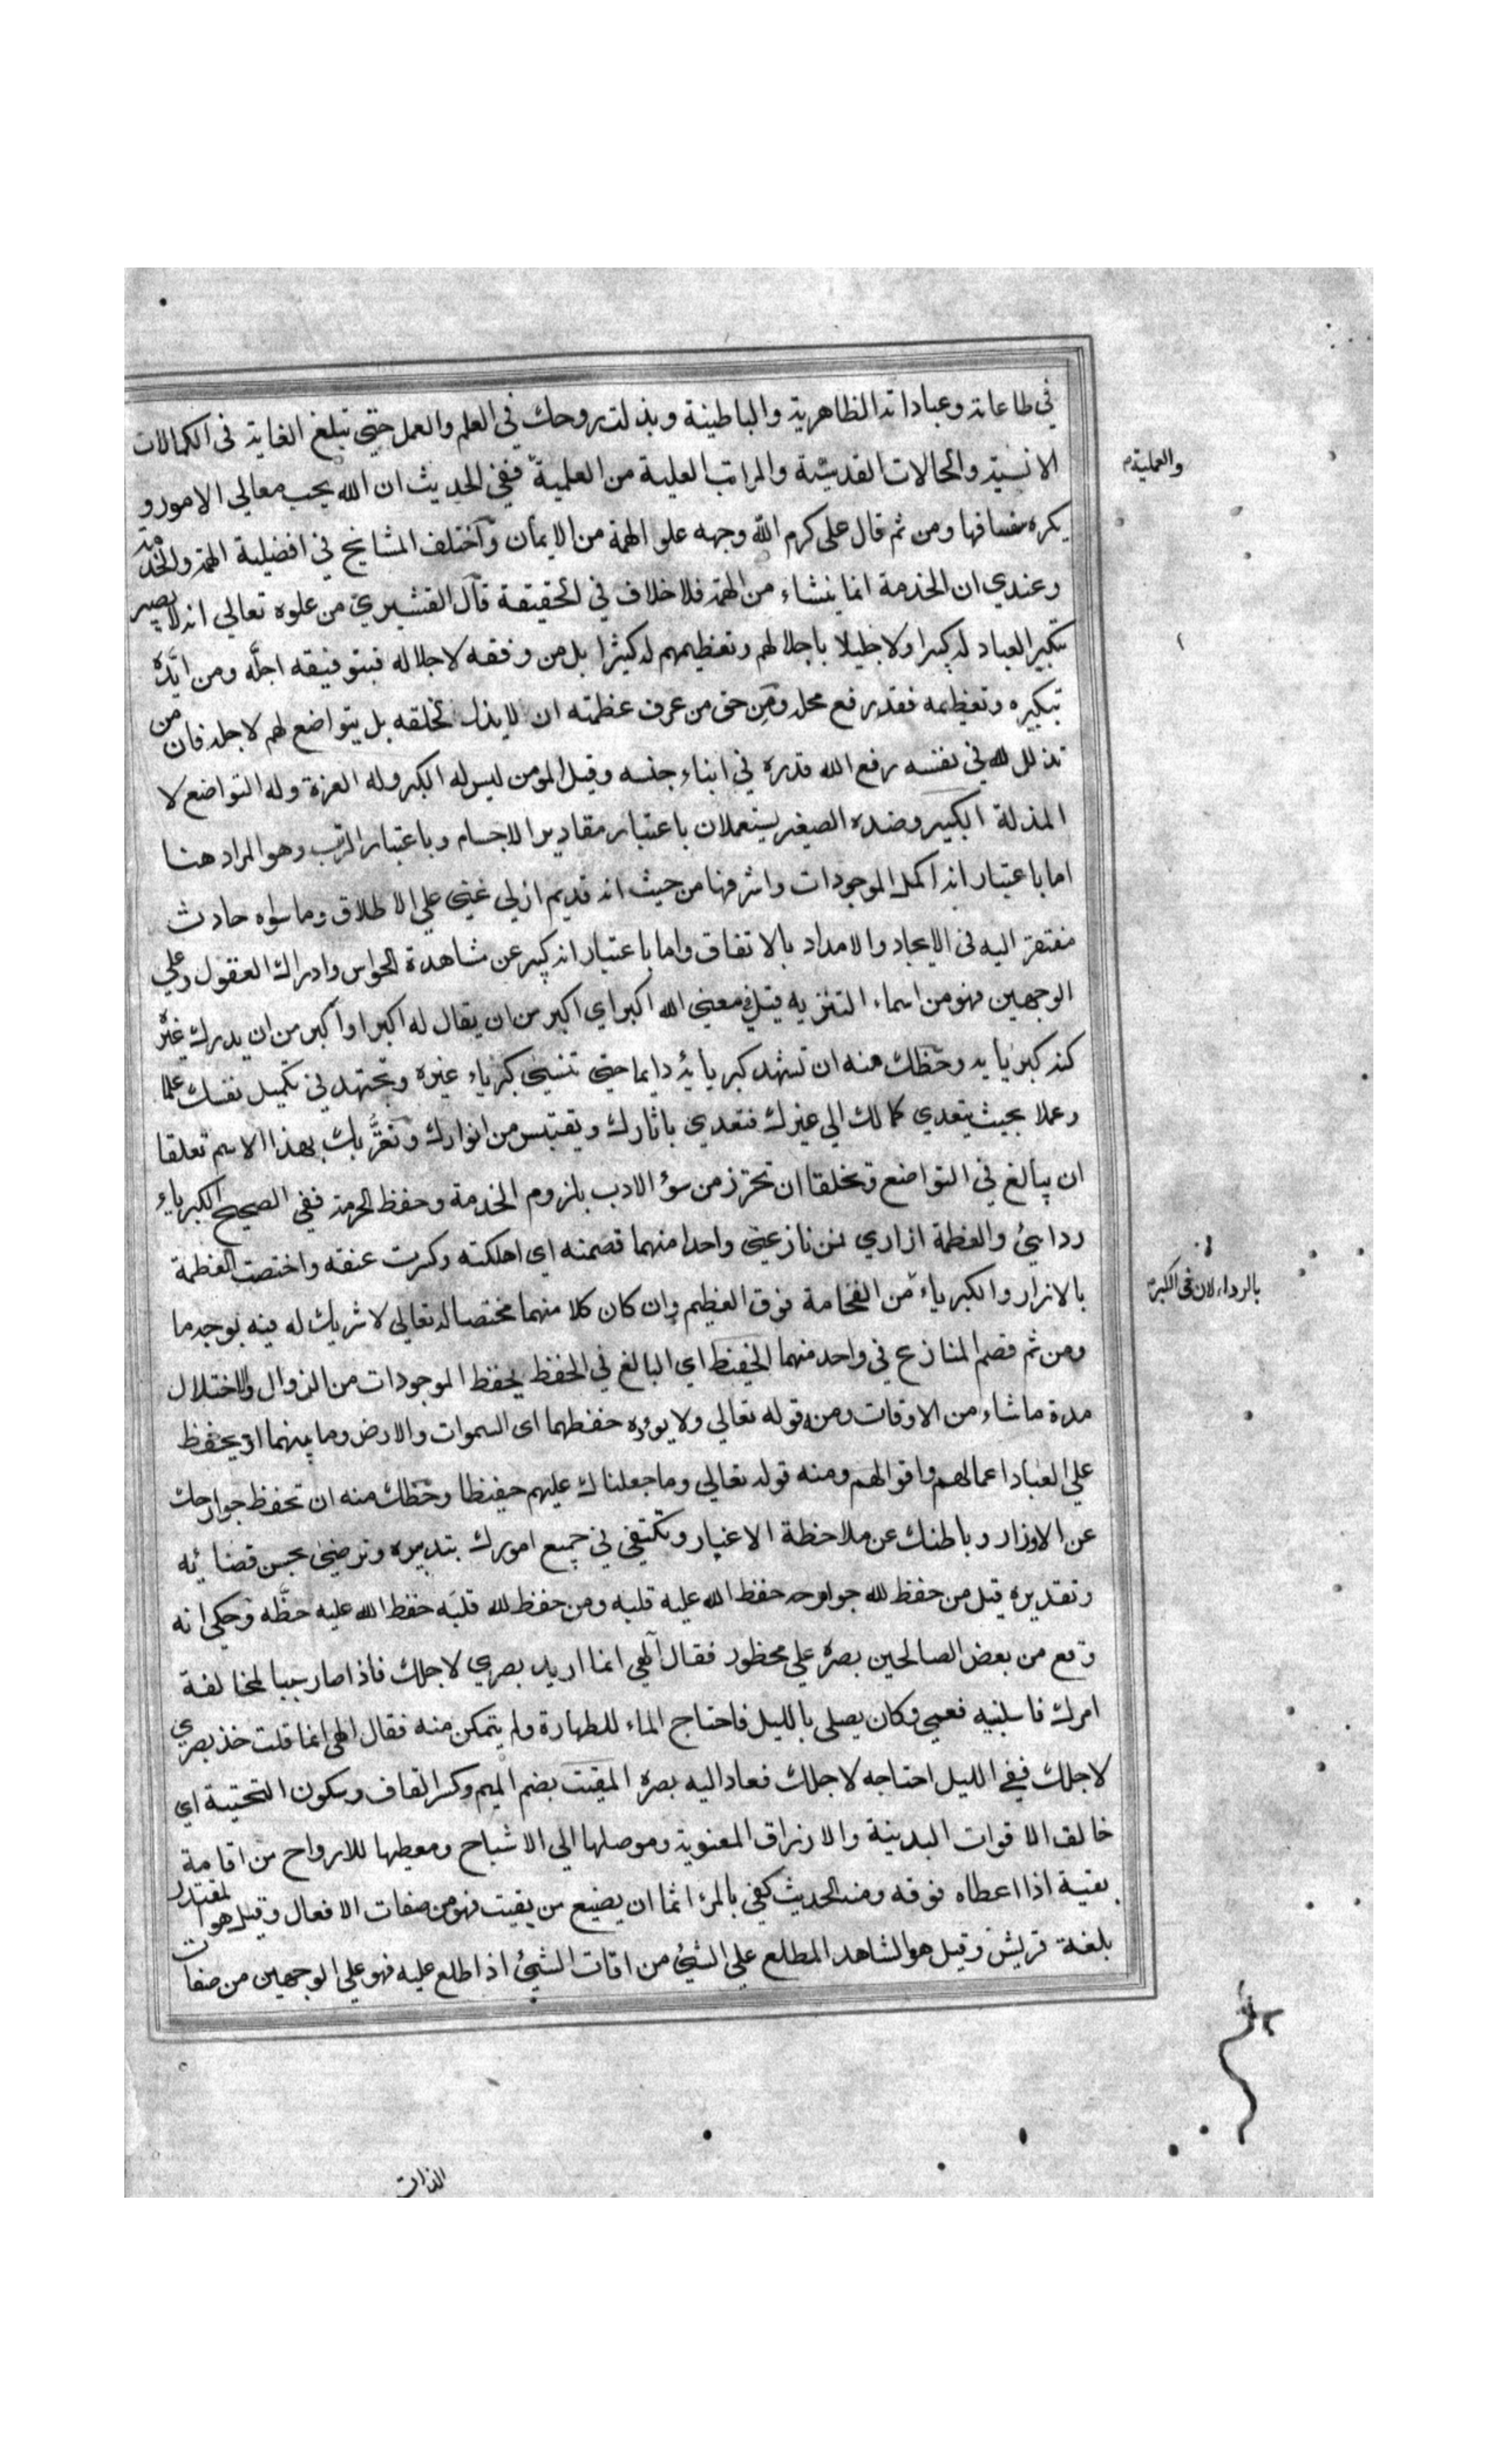 في طاعاته وعباداته الظاهرية والباطنية وبذلت روحك في العلم والعمل حتى تبلغ الغاية في الكمالات
الانسية والحالات القدسية والمراتب العلية من العلمية ففي الحديث ان الله يحب معالي الامور و
يكره سفسافها ومن ثم قال علي كرم الله وجهه علو الهمة من الايمان واختلف المشايخ في افضلية الهمة والخدمة
وعندي ان الخدمة انما ينشاء من الهمة فلا خلاف في الحقيقة قال القشيري من علوه تعالي انه لا يصير
بتكبير العباد له كبيرا ولا جليلا باجلالهم وتعظيمهم له كثيرا بل من وفقه لاجلاله فبتوفيقه اجله ومن ايده
بتكبيره وتعظيمه فقد رفع محله ومن حق من عرف عظمته ان لا يذل لخلقه بل يتواضع لهم لاجله فان من
تذلل لله في نفسه رفع الله قدره في ابناء جنسه وقيل المومن ليس له الكبر وله العزة وله التواضع لا
المذلة الكبير وضده الصغير يستعملان باعتبار مقادير الاجسام وباعتبار الرتب وهو المراد هنا
اما باعتبار انه اكمل الموجودات واشرفها من حيث انه قديم ازلي غني علي الاطلاق وما سواه حادث
مفتقر اليه في الايجاد والامداد بالاتفاق واما باعتبار انه كبير عن مشاهدة الحواس وادراك العقول وعلي
الوجهين فهو من اسماء التنزيه قيل في معني الله اكبر اي اكبر من ان يقال له اكبر او اكبر من ان يدرك غيره
كنه كبريايه وحظك منه ان تشهد كبريائه دايما حتى تنسي كبرياء غيره وتجتهد في تكميل نفسك علما
وعملا بحيث يتعدي كمالك الي غيرك فتعدي باثارك ويقتبس من انوارك وتقربك بهذا الاسم تعلقا
ان يبالغ في التواضع وتخلقا ان تحترز من سؤ الادب بلزوم الخدمة وحفظ الحرمة ففي الصحيح الكبرياء
ردايئ والعظمة ازاري فمن نازعني واحدا منهما قصمته اي اهلكته وكسرت عنقه واختصت العظمة
بالازار والكبرياء من الفخامة فوق العظيم وان كان كلا منهما مختصا له تعالي لا شريك له فيه بوجه ما
ومن ثم قصم المنازع في واحد منهما الحفيظ اي البالغ في الحفظ يحفظ الموجودات من الزوال والاختلال
مدة ما شاء من الاوقات ومنه قوله تعالي ولا يووده حفظهما اي السموات والارض وما بينهما او يحفظ
علي العباد اعمالهم واقوالهم ومنه قوله تعالي وما جعلناك عليهم حفيظا وحظك منه ان تحفظ جوارحك
عن الاوزار وباطنك عن ملاحظة الاغيار وتكتفي في جميع امورك بتدبيره وترضي بحسن قضائه
وتقديره قيل من حفظ لله جوارحه حفظ الله عليه قلبه ومن حفظ لله قلبه حفظ الله عليه حظه وحكي انه
وقع من بعض الصالحين بصره علي محظور فقال الهي انما اريد بصري لاجلك فاذا صار سببا لمخالفة
امرك فاسلبنيه فعمي وكان يصلي بالليل فاحتاج الماء للطهارة ولم يتمكن منه فقال الهي انما قلت خذ بصري
لاجلك ففي الليل احتاجه لاجلك فعاد اليه بصره المقيت بضم الميم وكسر القاف وسكون التحتية اي
خالق الاقوات البدنية والارزاق المعنوية وموصلها الي الاشباح ومعطيها للارواح من اقاته
يقيته اذا اعطاه قوته ومنه الحديث كفي بالمرء اثما ان يضيع من يقيت فهو من صفات الافعال وقيل هو المقتدر
بلغة قريش وقيل هو الشاهد المطلع علي الشئ من اقات الشئ اذا اطلع عليه فهو علي الوجهين من صفات
والعملية م
بالرداء لان في الكبر م
الذات